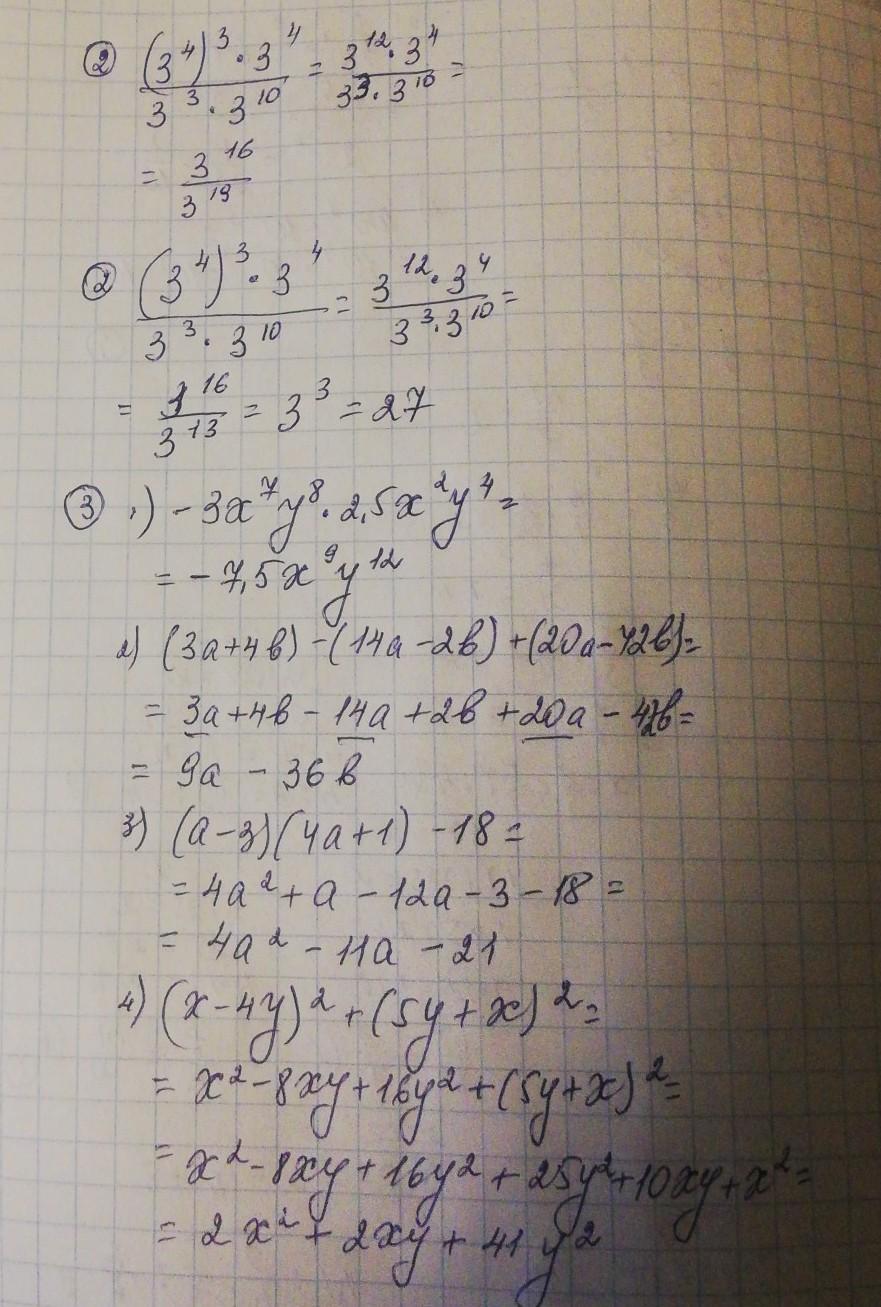 ② (3⁴)³ · 3⁴ / 3³ · 3¹⁰ = 3¹² · 3⁴ / 3³ · 3¹⁰ =
= 3¹⁶ / 3¹⁹
② (3⁴)³ · 3⁴ / 3³ · 3¹⁰ = 3¹² · 3⁴ / 3³ · 3¹⁰ =
= 3¹⁶ / 3¹³ = 3³ = 27
③ 1) - 3x⁷y⁸ · 2,5x²y⁴ =
= - 7,5x⁹y¹²
2) (3a+4b) - (14a - 2b) + (20a - 42b) =
= 3a + 4b - 14a + 2b + 20a - 42b =
= 9a - 36b
3) (a - 3)(4a + 1) - 18 =
= 4a² + a - 12a - 3 - 18 =
= 4a² - 11a - 21
4) (x - 4y)² + (5y + x)² =
= x² - 8xy + 16y² + (5y + x)² =
= x² - 8xy + 16y² + 25y² + 10xy + x² =
= 2x² + 2xy + 41y²